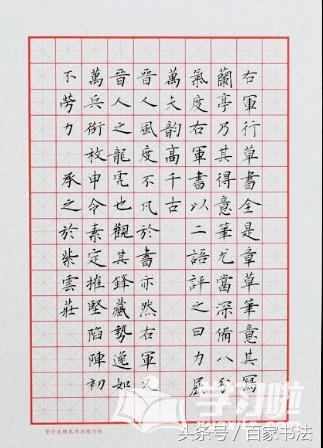 右軍行草書全是章草筆意其寫
蘭亭乃其得意筆尤當深備八分
氣度右軍書以二語評之曰力屈
萬夫韻高千古
晉人風度不凡於書亦然右軍又
晉人之龍虎也觀其鋒藏勢逸如
萬兵銜枚申令素定摧堅陷陣初
不勞力 承之於紫雲莊
学习啦
头条号 / 百家书法